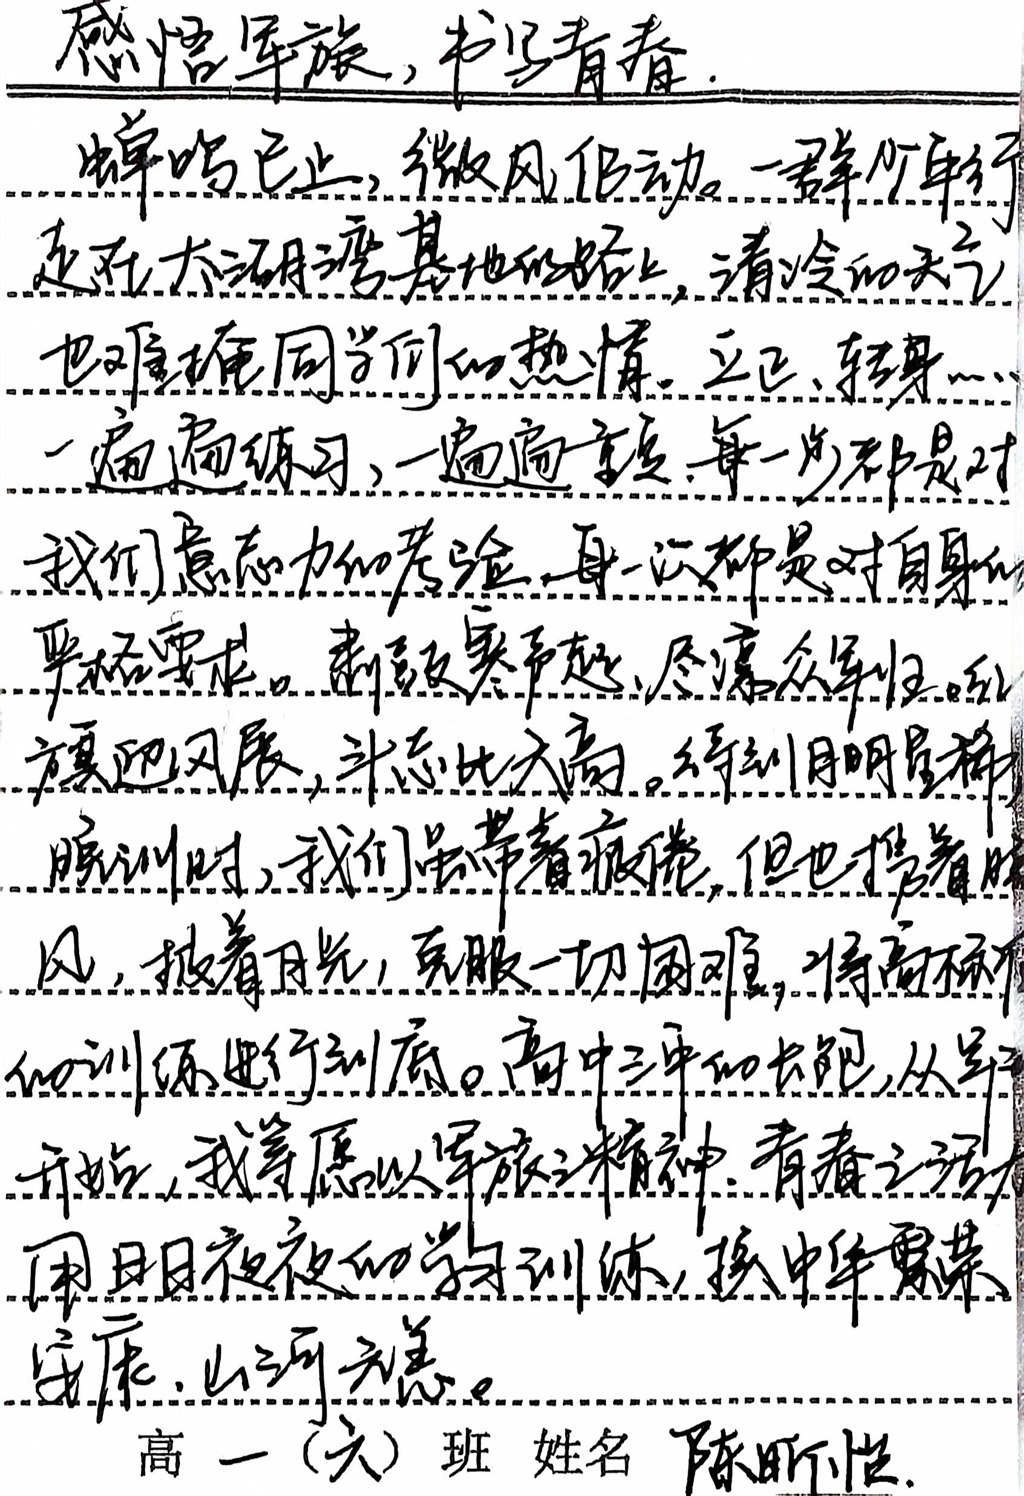 感悟军旅，书写青春.
蝉鸣已止，微风仍动。一群少年行
走在太湖湾基地的路上，清冷的天气
也难掩同学们的热情。立正、转身……
一遍遍练习，一遍遍重复.每一步都是对
我们意志力的考验，每一次都是对自身的
严格要求。鼓寒声起、尽濠众军归。红
旗迎风展，斗志比天高。待到月明星稀
晚训时，我们虽带着疲倦，但也携着晚
风，披着月光，克服一切困难，将高标准
的训练进行到底。高中三年的长跑，从军训
开始，我等愿以军旅之精神.青春之活力
用日日夜夜的学习训练，换中华繁荣
安康、山河无恙。
高一（六）班 姓名 陈昕怡.